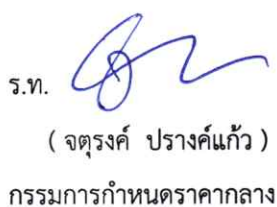 ร.ท.
( จตุรงค์ ปรางค์แก้ว )
กรรมการกำหนดราคากลาง